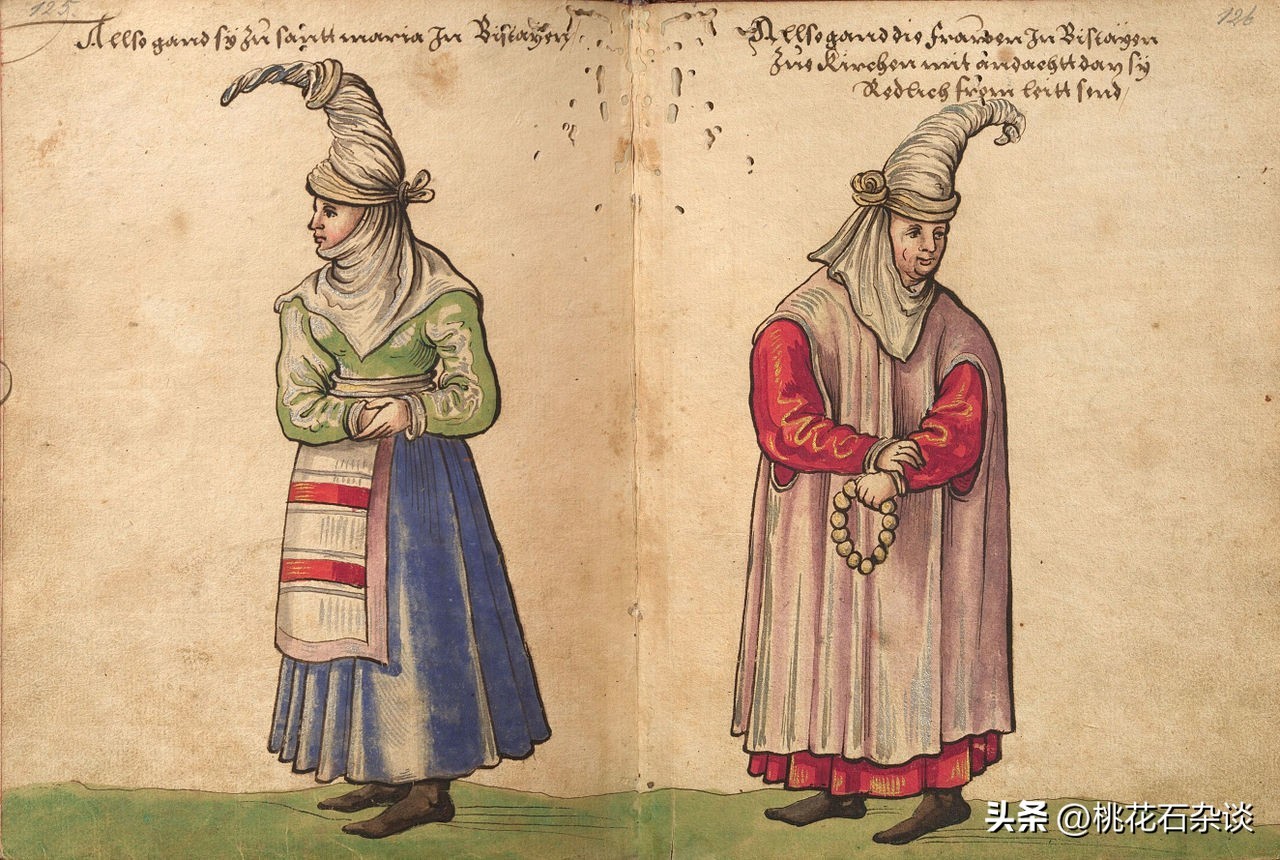 125
Allso gand sy zů santt maria In Biscayen
126
Allso gand die frawen In Biscayen
Zůe Kirchen mit andachtt dan sy
Redlich from leitt send
头条 @桃花石杂谈